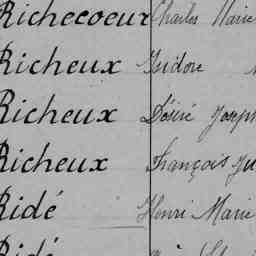 Richecoeur Charles Marie
Richeux Isidore
Richeux Désiré Joseph
Richeux François
Ridé Henri Marie
Ridé